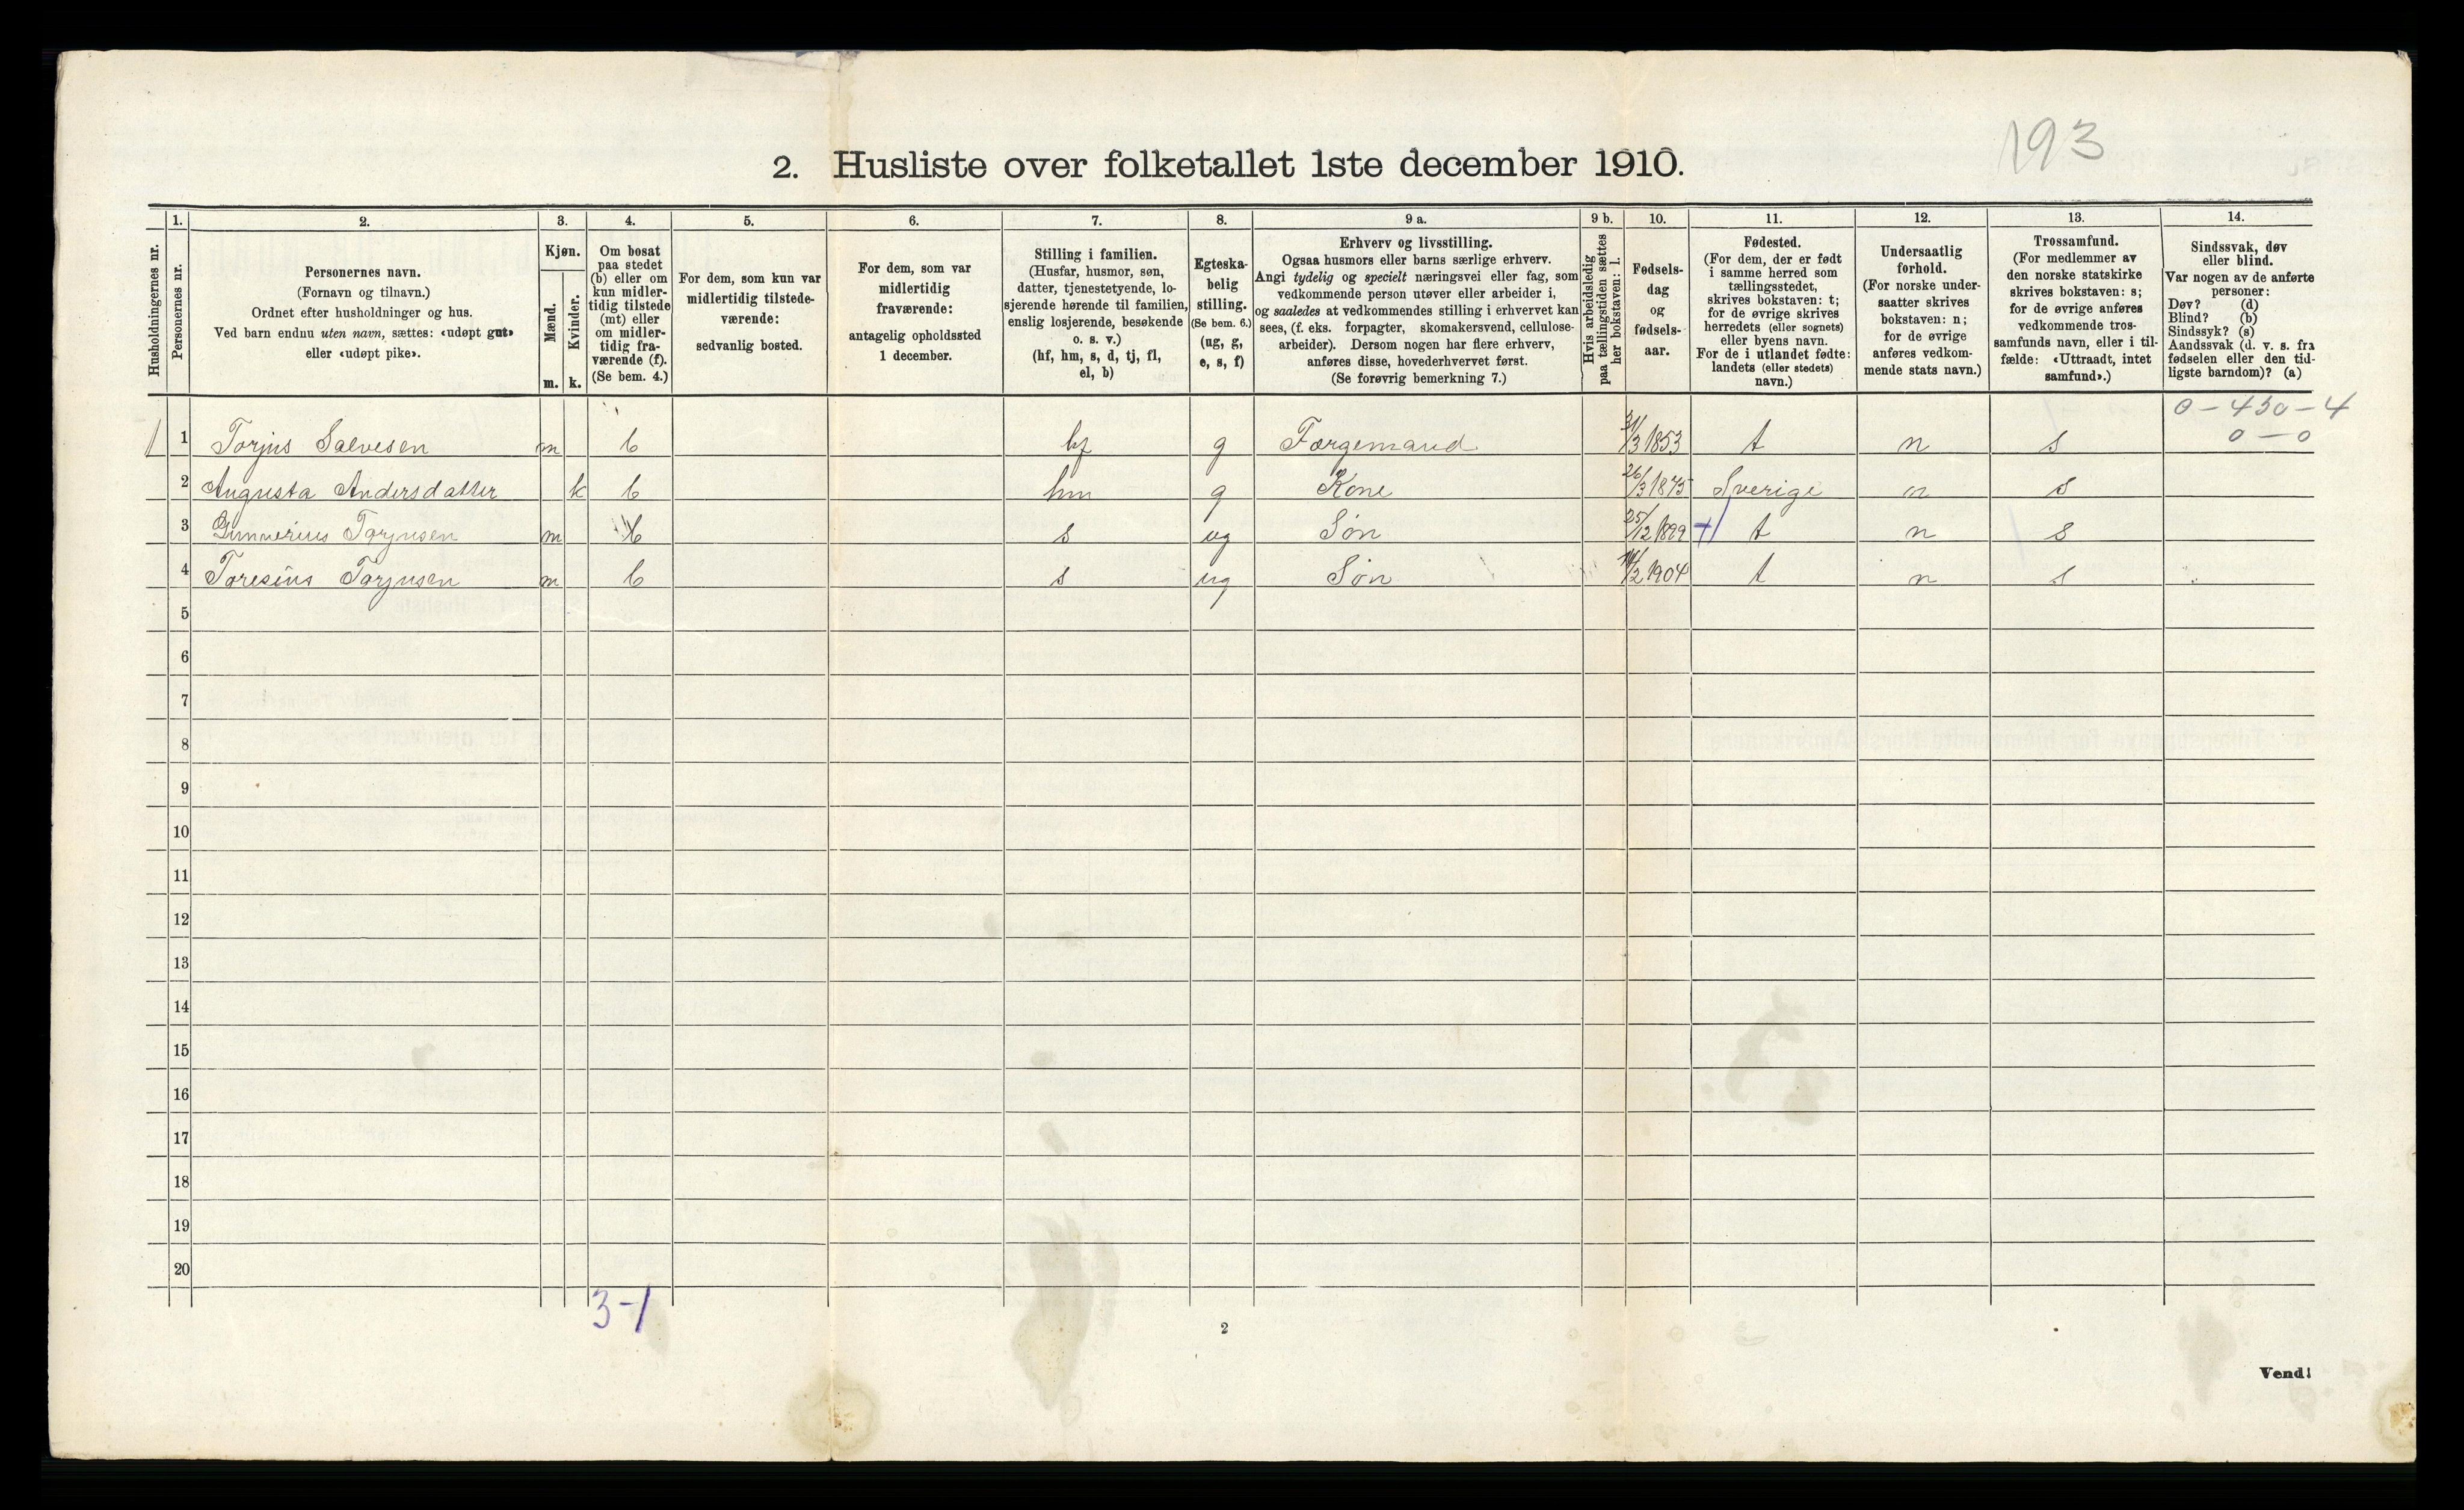 193
2. Husliste over folketallet 1ste december 1910.
Husholdningernes nr.
1.
Personernes nr.
2.
Personernes navn.
(Fornavn og tilnavn.)
Ordnet efter husholdninger og hus.
Ved barn endnu uten navn, sættes: «udøpt gut»
eller «udøpt pike».
3.
Kjøn.
Mænd.
Kvinder.
m. k.
4.
Om bosat
paa stedet
(b) eller om
kun midler-
tidig tilstede
(mt) eller
om midler-
tidig fra-
værende (f).
(Se bem. 4.)
5.
For dem, som kun var
midlertidig tilstede-
værende:
sedvanlig bosted.
6.
For dem, som var
midlertidig
fraværende:
antagelig opholdssted
1 december.
7.
Stilling i familien.
(Husfar, husmor, søn,
datter, tjenestetyende, lo-
sjerende hørende til familien,
enslig losjerende, besøkende
o. s. v.)
(hf, hm, s, d, tj, fl,
el, b)
8.
Egteska-
belig
stilling.
(Se bem. 6.)
(ug, g,
e, s, f)
9 a.
Erhverv og livsstilling.
Ogsaa husmors eller barns særlige erhverv.
Angi tydelig og specielt næringsvei eller fag, som
vedkommende person utøver eller arbeider i,
og saaledes at vedkommendes stilling i erhvervet kan
sees, (f. eks. forpagter, skomakersvend, cellulose-
arbeider). Dersom nogen har flere erhverv,
anføres disse, hovederhvervet først.
(Se forøvrig bemerkning 7.)
9 b.
Hvis arbeidsledig
paa tællingstiden sættes
her bokstaven: l.
10.
Fødsels-
dag
og
fødsels-
aar.
11.
Fødested.
(For dem, der er født
i samme herred som
tællingsstedet,
skrives bokstaven: t;
for de øvrige skrives
herredets (eller sognets)
eller byens navn.
For de i utlandet fødte:
landets (eller stedets)
navn.)
12.
Undersaatlig
forhold.
(For norske under-
saatter skrives
bokstaven: n;
for de øvrige
anføres vedkom-
mende stats navn.)
13.
Trossamfund.
(For medlemmer av
den norske statskirke
skrives bokstaven: s;
for de øvrige anføres
vedkommende tros-
samfunds navn, eller i til-
fælde: «Uttraadt, intet
samfund».)
14.
Sindssvak, døv
eller blind.
Var nogen av de anførte
personer:
Døv? (d)
Blind? (b)
Sindssyk? (s)
Aandssvak (d. v. s. fra
fødselen eller den tid-
ligste barndom)? (a)
0 - 430 - 4
0 - 0
1 1 Torjus Salvesen m b hf g Færgemand 31/3 1853 t n s
2 Augusta Andersdatter k b hm g Kone 26/3 1875 Sverige n s
3 Gunnerius Torjusen m b s ug Søn 25/12 1899 t n s
4 Toresius Torjusen m b s ug Søn 14/2 1904 t n s
5
6
7
8
9
10
11
12
13
14
15
16
17
18
19
20
3-1
2
Vend!